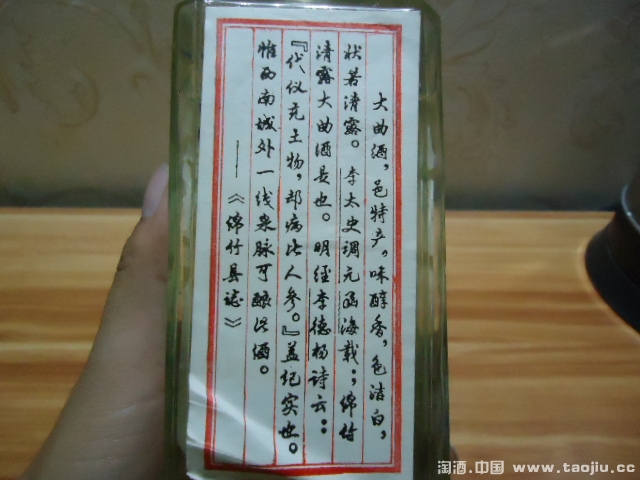 大曲酒，邑特产，味醇香，色洁白，
状若清露。李太史调元函海载；绵竹
清露大曲酒是也。明经李德扬诗云：
『代仪充土物，却病比人参。』盖纪实也。
惟西南城外一线泉脉可酿此酒。
——《绵竹县志》
淘酒.中国 www.taojiu.cc